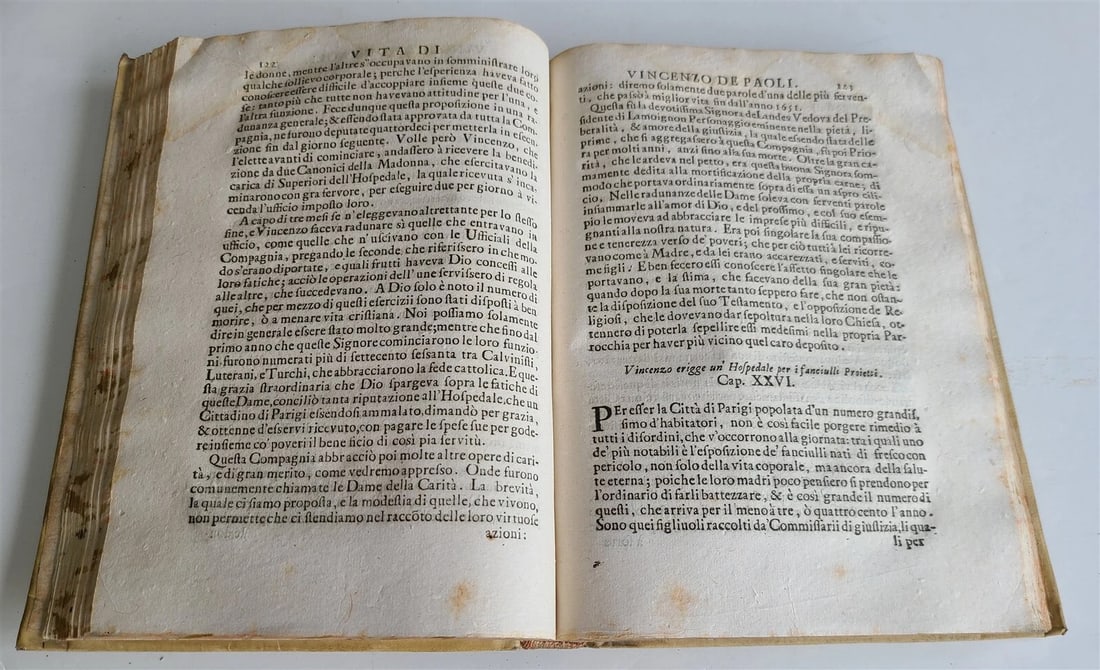 122 VITA DI
le donne, mentre l'altre s'occupavano in somministrare loro
qualche sollievo corporale; perche l'esperienza haveva fatto
conoscere essere difficile d'accoppiare insieme queste due co-
se: tanto più che tutte non havevano attitudine per l'una, e
l'altra funzione. Fece dunque questa proposizione in una ra-
dunanza generale; & essendo stata approvata da tutta la Com-
pagnia, ne furono deputate quattordeci per metterla in esecu-
zione fin dal giorno seguente. Volle però Vincenzo, che
l'elette avanti di cominciare, andassero à ricevere la benedi-
zione da due Canonici della Madonna, che esercitavano la
carica di Superiori dell'Hospedale, la quale ricevuta s'inca-
minarono con gra fervore, per eseguire due per giorno à vi-
cenda l'ufficio imposto loro.
A capo di tre mesi se n'eleggevano altrettante per lo stesso
fine, e Vincenzo faceva radunare sì quelle che entravano in
ufficio, come quelle che n'uscivano con le Ufficiali della
Compagnia, pregando le seconde che riferissero in che mo-
do s'erano diportate, e quali frutti haveva Dio concessi alle
loro fatiche; acciò le operazioni dell'une servissero di regola
alle altre, che succedevano. A Dio solo è noto il numero di
quei, che per mezzo di questi esercizii sono stati disposti à ben
morire, ò a menare vita cristiana. Noi possiamo solamente
dire in generale essere stato molto grande; mentre che fino dal
primo anno che queste Signore cominciarono le loro funzio-
ni furono numerati più di settecento sessanta tra Calvinisti,
Luterani, e Turchi, che abbracciarono la fede cattolica. E que-
sta grazia straordinaria che Dio spargeva sopra le fatiche di
queste Dame, conciliò tanta riputazione all'Hospedale, che un
Cittadino di Parigi essendosi ammalato, dimandò per grazia,
& ottenne d'esservi ricevuto, con pagare le spese sue per gode-
re insieme co' poveri il beneficio di così pia servitù.
Questa Compagnia abbracciò poi molte altre opere di cari-
tà, e di gran merito, come vedremo appresso. Onde furono
comunemente chiamate le Dame della Carità. La brevità,
la quale ci siamo proposta, e la modestia di quelle, che vivono,
non permette che ci stendiamo nel raccōto delle loro virtuose
azioni:
VINCENZO DE PAOLI. 123
azioni: diremo solamente due parole d'una delle più ferven-
ti, che passò à miglior vita fin dall'anno 1651.
Questa fù la devotissima Signora de Landes Vedova del Pre-
sidente di Lamoignon Personaggio eminente nella pietà, li-
beralità, & amore della giustizia, la quale essendo stata delle
prime, che si aggregassero à questa Compagnia, fù poi Prio-
ra per molti anni, anzi fino alla sua morte. Oltre la gran ca-
rità, che le ardeva nel petto, era questa buona Signora som-
mamente dedita alla mortificazione della propria carne; di
modo che portava ordinariamente sopra di essa un aspro cili-
cio. Nelle radunanze delle Dame soleva con ferventi parole
infiammarle all'amor di Dio, e del prossimo, e col suo esem-
pio le moveva ad abbracciare le imprese più difficili, e ripu-
gnanti alla nostra natura. Era poi singolare la sua compassio-
ne e tenerezza verso de' poveri; che per ciò tutti à lei ricorre-
vano come à Madre, e da lei erano accarezzati, e serviti, co-
me figli. E ben fecero essi conoscere l'affetto singolare che le
portavano, e la stima, che facevano della sua gran pietà:
quando dopo la sua morte tanto seppero fare, che non ostan-
te la disposizione del suo Testamento, e l'opposizione de Re-
ligiosi, che le dovevano dar sepoltura nella loro Chiesa, ot-
tennero di poterla sepellire essi medesimi nella propria Par-
rocchia per haver più vicino quel caro deposito.
Vincenzo erigge un' Hospedale per i fanciulli Proietti.
Cap. XXVI.
PEr esser la Città di Parigi popolata d'un numero grandis-
simo d'habitatori, non è così facile porgere rimedio à
tutti i disordini, che v'occorrono alla giornata: tra i quali uno
de' più notabili è l'esposizione de' fanciulli nati di fresco con
pericolo, non solo della vita coporale, ma ancora della salu-
te eterna; poiche le loro madri poco pensiero si prendono per
l'ordinario di farli battezzare, & è così grande il numero di
questi, che arriva per il meno à tre, ò quattro cento l'anno.
Sono quei figliuoli raccolti da' Commissarii di giustizia, li qua-
li per